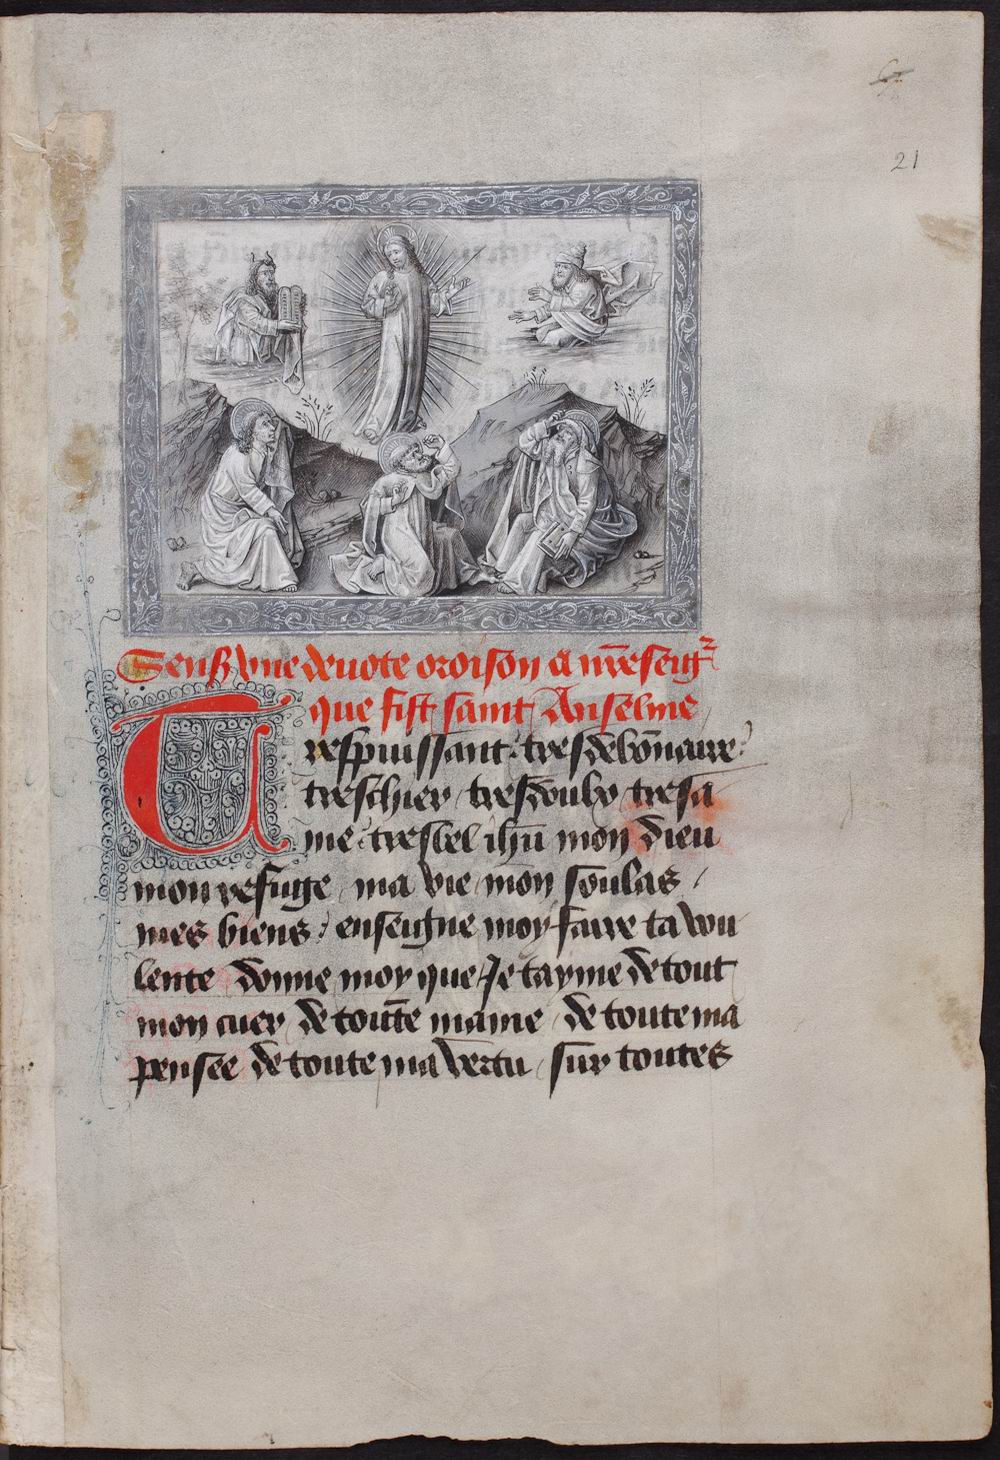 21
Sensuit vne deuote oroison a nr̄e seigr
que fist saint Anselme
Trespuissant tresdebōnaire
treschier tresdoubz tresa
me tresbel ihū mon dieu
mon refuge ma vie mon soulas
mes biens enseigne moy faire ta vou
lente donne moy que Je tayme de tout
mon cuer de toute mame de toute ma
pensee de toute ma vertu sur toutes